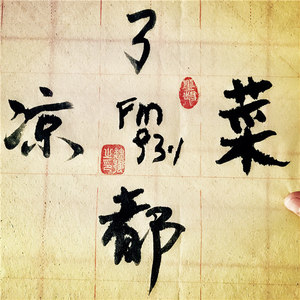 了
凉
Fm
93.1
菜
都